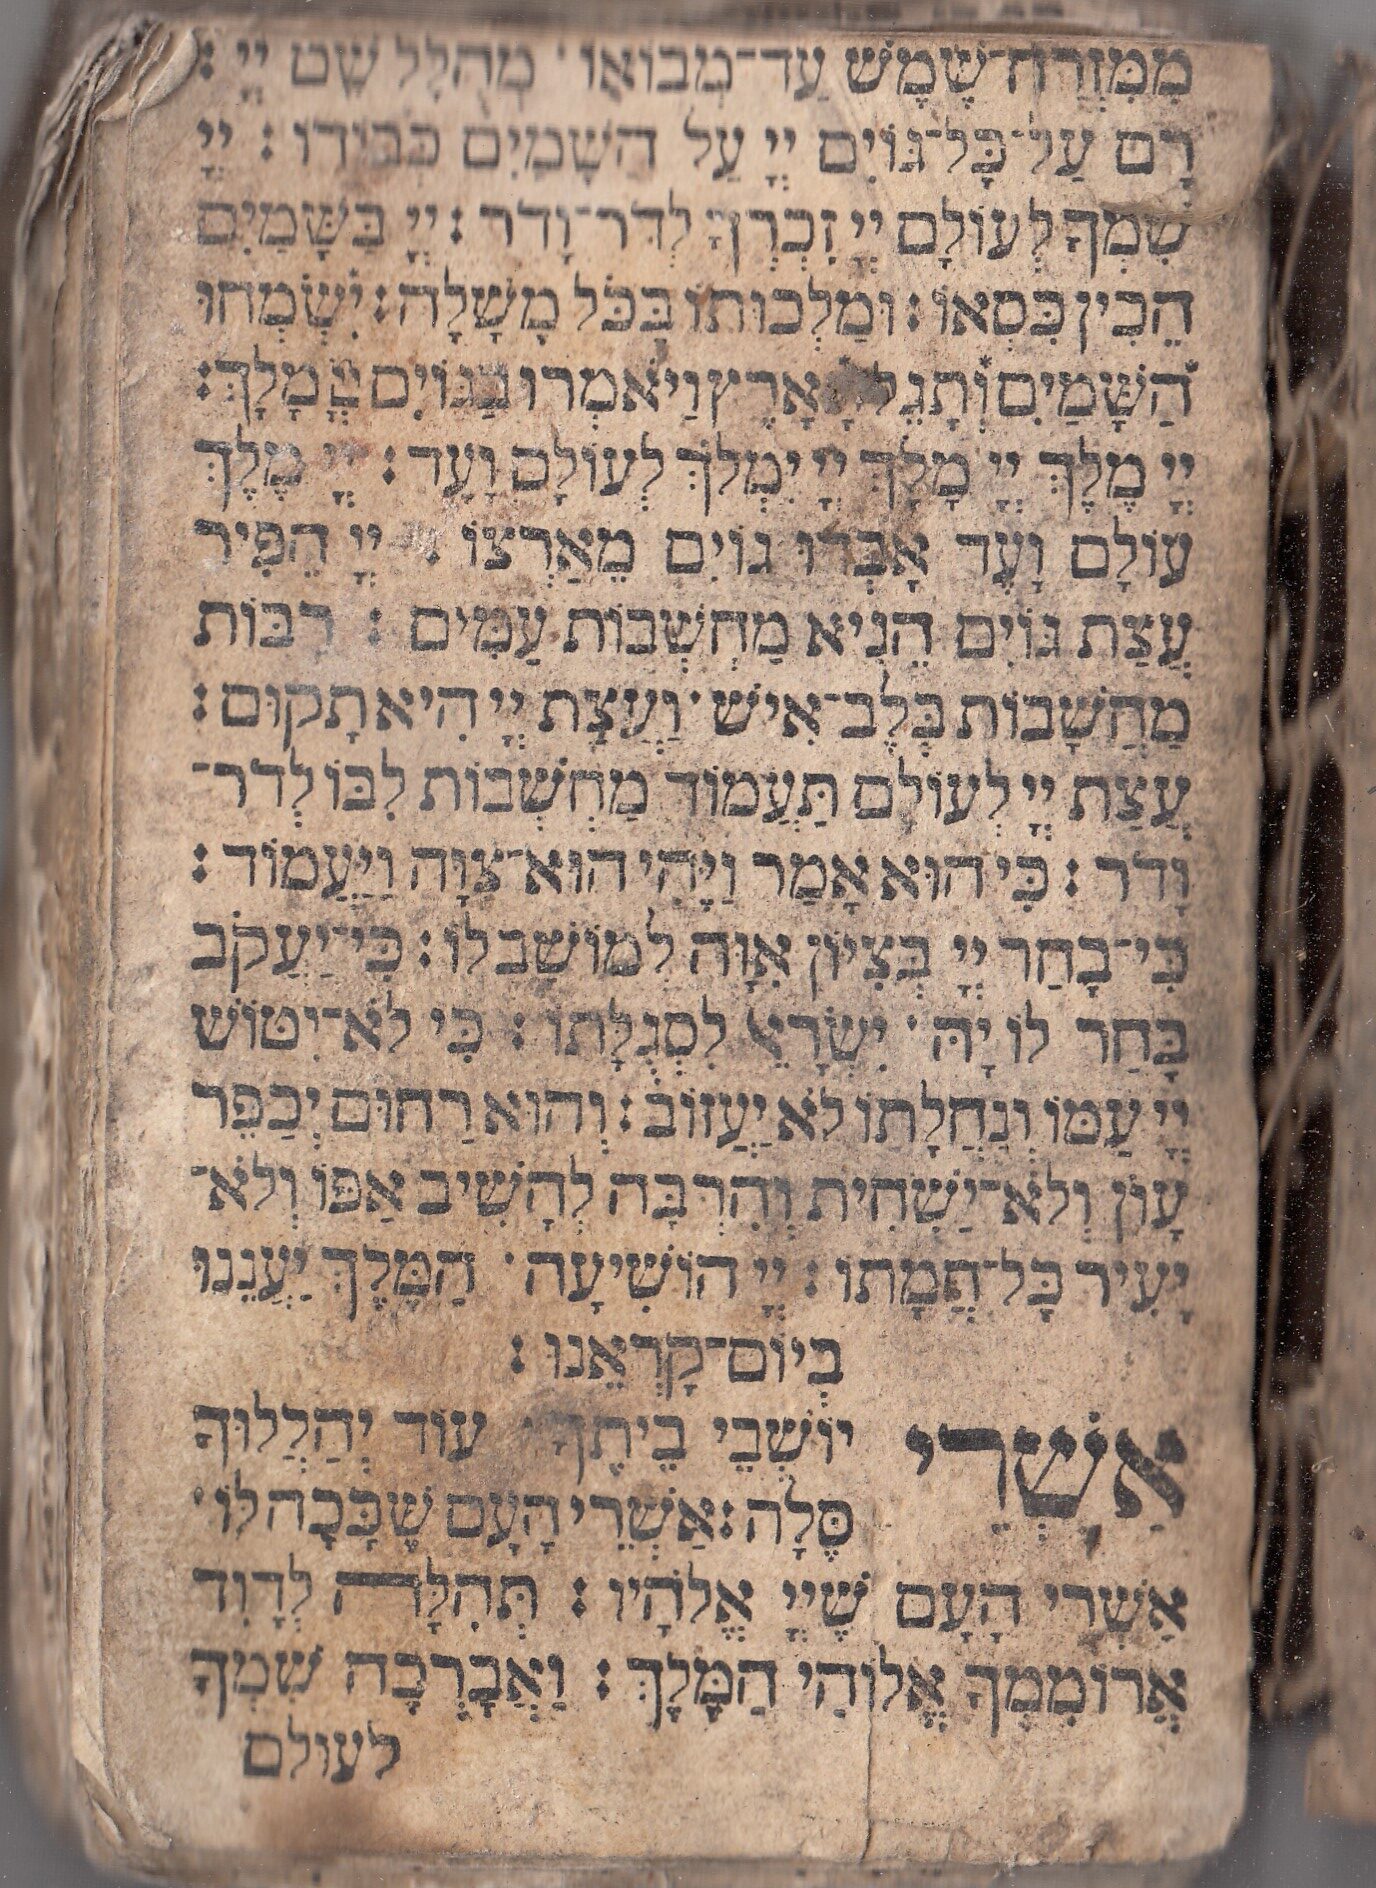 מִמִּזְרַח־שֶׁמֶשׁ עַד־מְבוֹאוֹ · מְהֻלָּל שֵׁם יְיָ :
רָם עַל־כָּל־גּוֹיִם יְיָ עַל הַשָּׁמַיִם כְּבוֹדוֹ : יְיָ
שִׁמְךָ לְעוֹלָם יְיָ זִכְרְךָ לְדֹר־וָדֹר : יְיָ בַּשָּׁמַיִם
הֵכִין כִּסְאוֹ : וּמַלְכוּתוֹ בַּכֹּל מָשָׁלָה : יִשְׂמְחוּ
הַשָּׁמַיִם וְתָגֵל הָאָרֶץ וְיֹאמְרוּ בַגּוֹיִם יְיָ מָלָךְ :
יְיָ מֶלֶךְ יְיָ מָלָךְ יְיָ יִמְלֹךְ לְעוֹלָם וָעֶד : יְיָ מֶלֶךְ
עוֹלָם וָעֶד אָבְדוּ גוֹיִם מֵאַרְצוֹ : יְיָ הֵפִיר
עֲצַת גּוֹיִם הֵנִיא מַחְשְׁבוֹת עַמִּים : רַבּוֹת
מַחֲשָׁבוֹת בְּלֶב־אִישׁ · וַעֲצַת יְיָ הִיא תָקוּם :
עֲצַת יְיָ לְעוֹלָם תַּעֲמוֹד מַחְשְׁבוֹת לִבּוֹ לְדֹר־
וָדֹר : כִּי הוּא אָמַר וַיֶּהִי הוּא־צִוָּה וַיַּעֲמוֹד :
כִּי־בָחַר יְיָ בְּצִיּוֹן אִוָּהּ לְמוֹשָׁב לוֹ : כִּי־יַעֲקֹב
בָּחַר לוֹ יָהּ · יִשְׂרָאֵל לִסְגֻלָּתוֹ : כִּי לֹא־יִטּוֹשׁ
יְיָ עַמּוֹ וְנַחֲלָתוֹ לֹא יַעֲזוֹב : וְהוּא רַחוּם יְכַפֵּר
עָוֹן וְלֹא־יַשְׁחִית וְהִרְבָּה לְהָשִׁיב אַפּוֹ וְלֹא־
יָעִיר כָּל־חֲמָתוֹ : יְיָ הוֹשִׁיעָה · הַמֶּלֶךְ יַעֲנֵנוּ
בְיוֹם־קָרְאֵנוּ :
אַשְׁרֵי יוֹשְׁבֵי בֵיתֶךָ · עוֹד יְהַלְלוּךָ
סֶּלָה : אַשְׁרֵי הָעָם שֶׁכָּכָה לּוֹ ·
אַשְׁרֵי הָעָם שֶׁיְיָ אֱלֹהָיו : תְּהִלָּה לְדָוִד
אֲרוֹמִמְךָ אֱלוֹהַי הַמֶּלֶךְ : וַאֲבָרְכָה שִׁמְךָ
לעולם